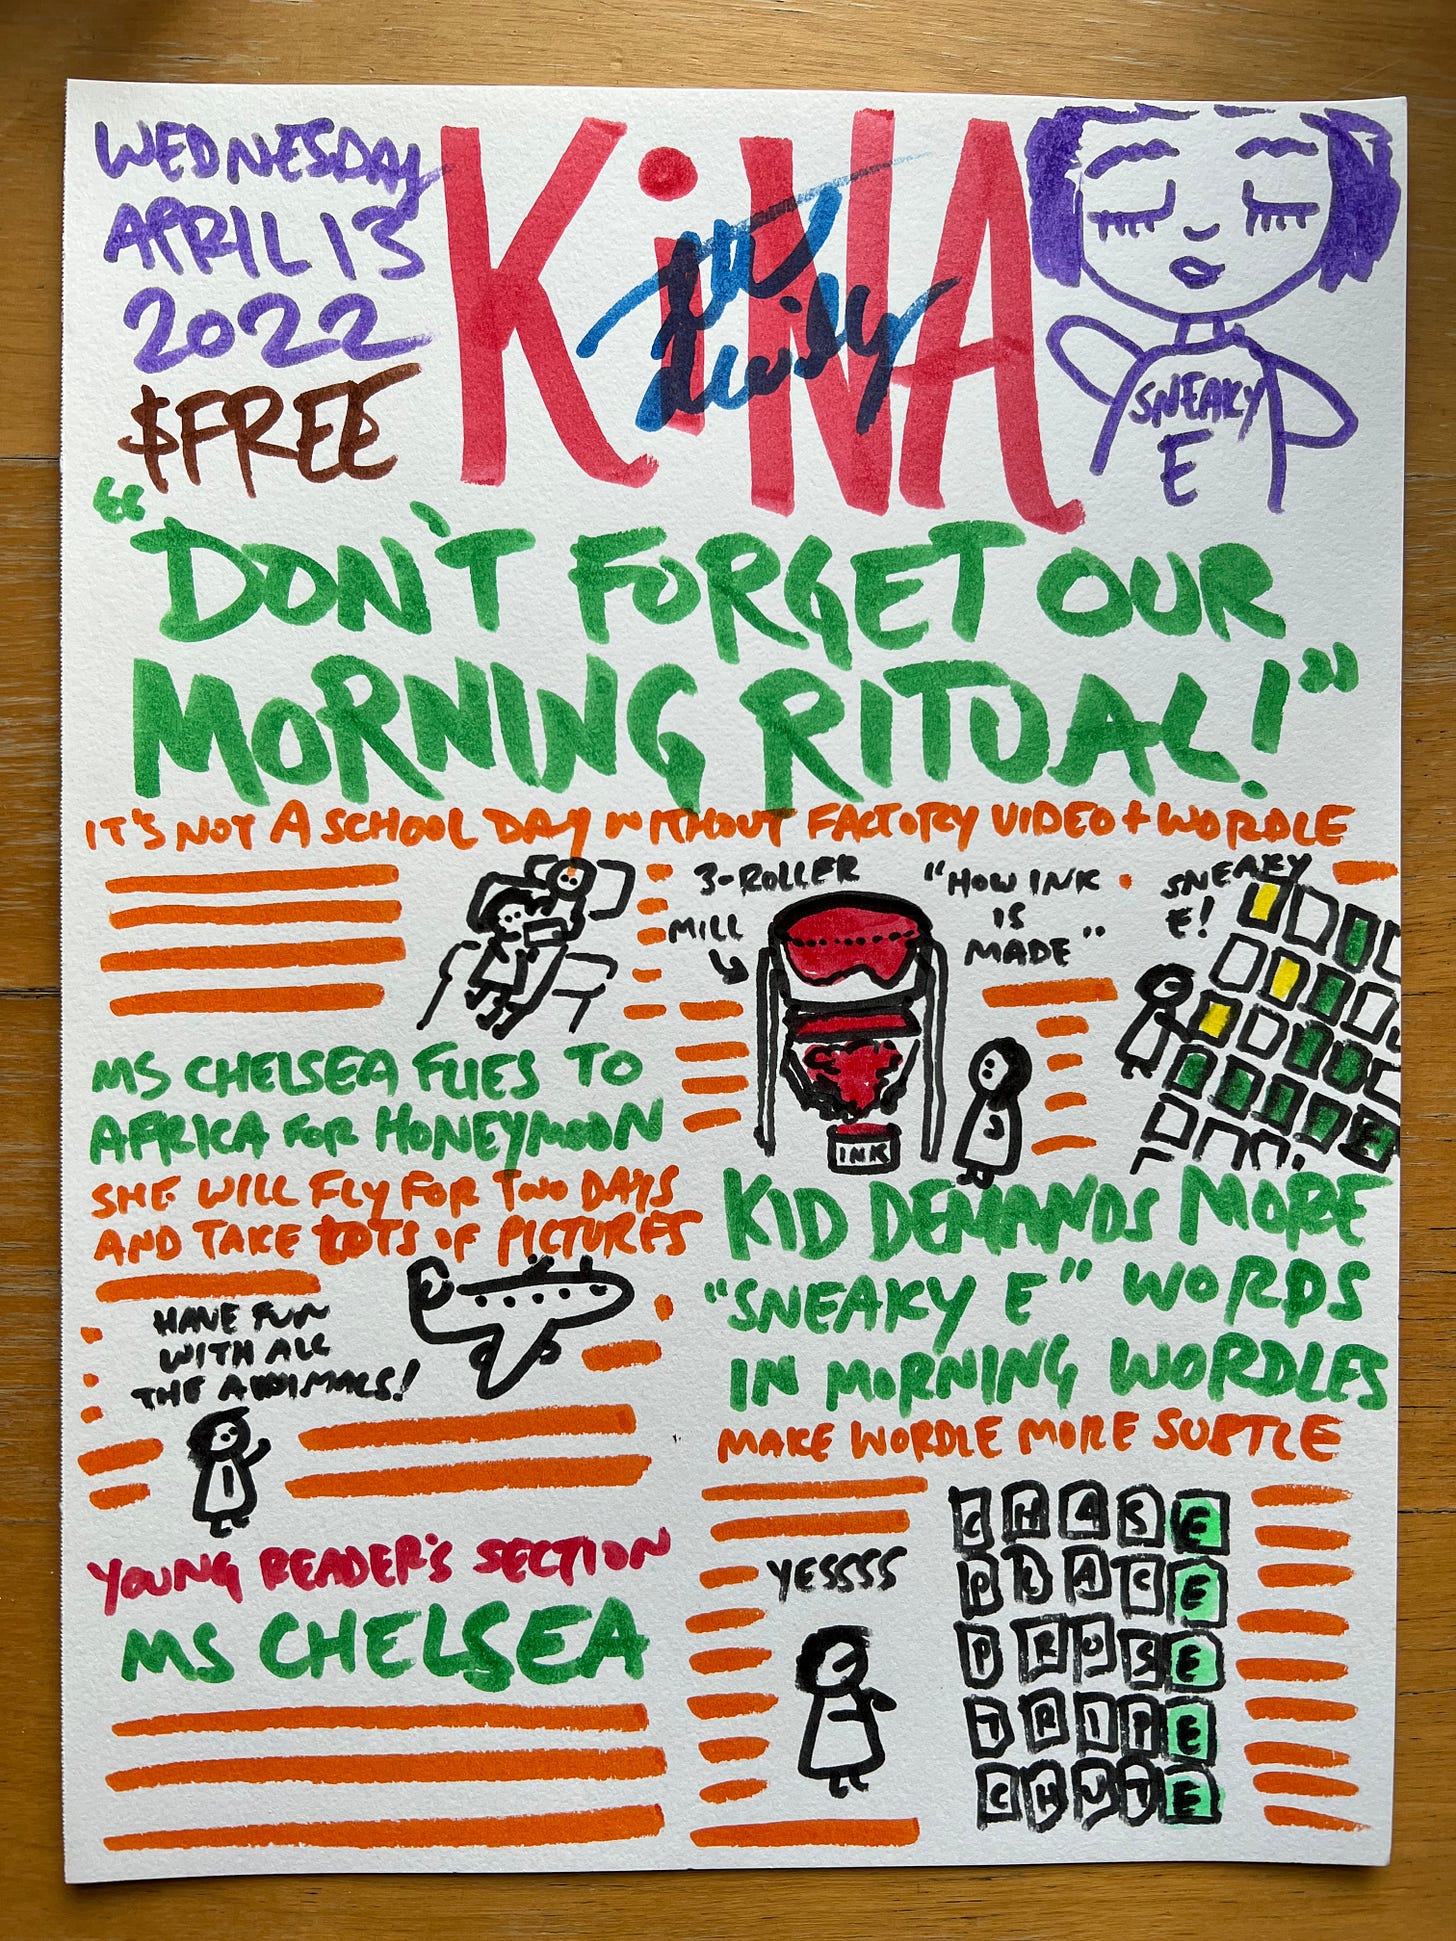 WEDNESDAY
APRIL 13
2022
$FREE
KiNA
SNEAKY
E
"DON'T FORGET OUR
MORNING RITUAL!"
IT'S NOT A SCHOOL DAY WITHOUT FACTORY VIDEO + WORDLE
MS CHELSEA FLIES TO
AFRICA FOR HONEYMOON
SHE WILL FLY FOR TWO DAYS
AND TAKE LOTS OF PICTURES
HAVE FUN
WITH ALL
THE ANIMALS!
YOUNG READER'S SECTION
MS CHELSEA
3-ROLLER
MILL
"HOW INK
IS
MADE"
INK
SNEAKY
E!
E
KID DEMANDS MORE
"SNEAKY E" WORDS
IN MORNING WORDLES
MAKE WORDLE MORE SUBTLE
YESSSS
CHASE
PLACE
PRUSE
TRIPE
CHUTE